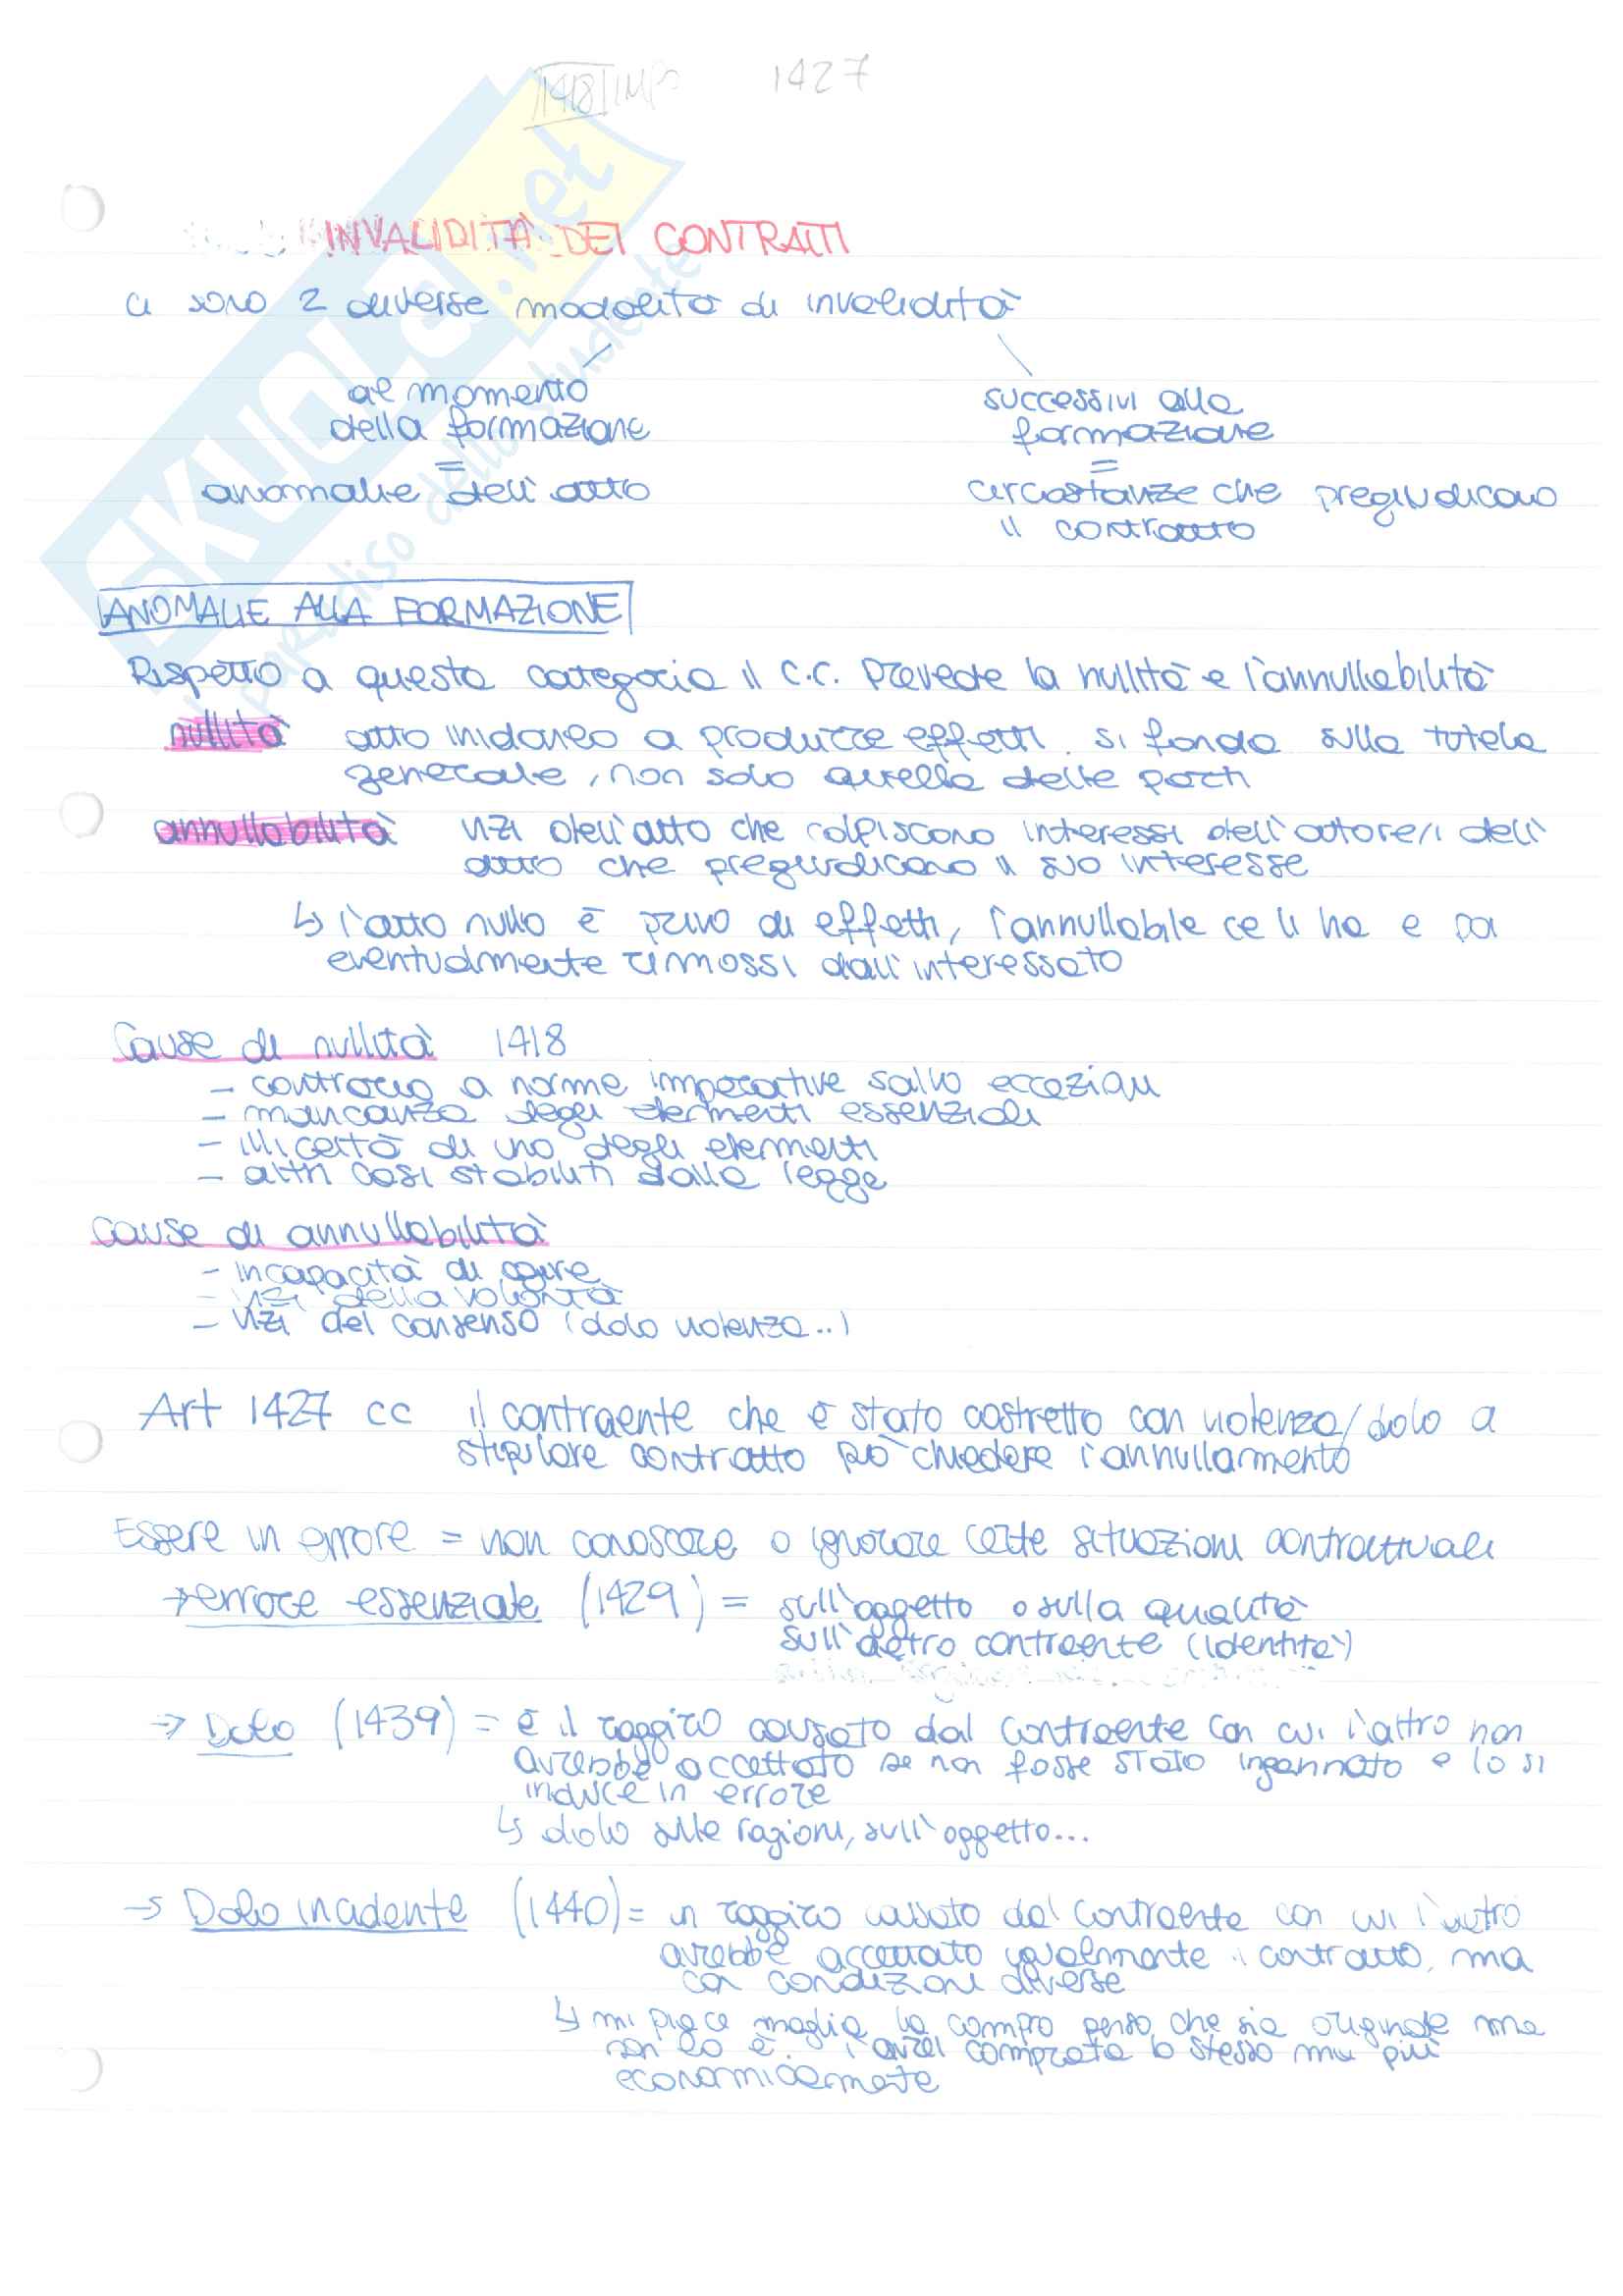 1418 1427
INVALIDITÀ DEI CONTRATTI
ci sono 2 diverse modalità di invalidità
al momento
della formazione
=
anomalie dell'atto
successivi alla
formazione
=
circostanze che pregiudicano
il contratto
ANOMALIE ALLA FORMAZIONE
Rispetto a questa categoria il c.c. prevede la nullità e l'annullabilità
nullità atto inidoneo a produrre effetti. si fonda sulla tutela
generale, non solo quella delle parti
annullabilità vizi dell'atto che colpiscono interessi dell'autore/i dell'
atto che pregiudicano il suo interesse
↳ l'atto nullo è privo di effetti, l'annullabile ce li ha e poi
eventualmente rimossi dall'interessato
Cause di nullità 1418
- contrario a norme imperative salvo eccezioni
- mancanza degli elementi essenziali
- illiceità di uno degli elementi
- altri casi stabiliti dalla legge
Cause di annullabilità
- incapacità di agire
- vizi della volontà
- vizi del consenso (dolo violenza..)
Art 1427 cc il contraente che è stato costretto con violenza/dolo a
stipulare contratto può chiedere l'annullamento
Essere in errore = non conoscere o ignorare certe situazioni contrattuali
→ errore essenziale (1429) = sull'oggetto o sulla qualità
sull'altro contraente (identità)
→ Dolo (1439) = è il raggiro causato dal contraente con cui l'altro non
avrebbe accettato se non fosse stato ingannato e lo si
induce in errore
↳ dolo sulle ragioni, sull'oggetto...
→ Dolo incidente (1440) = un raggiro causato dal contraente con cui l'altro
avrebbe accettato ugualmente il contratto, ma
con condizioni diverse
↳ mi piace maglia la compro penso che sia originale ma
non lo è. l'avrei comprata lo stesso ma più
economicamente
SKUOLA.net
paradiso dello studente